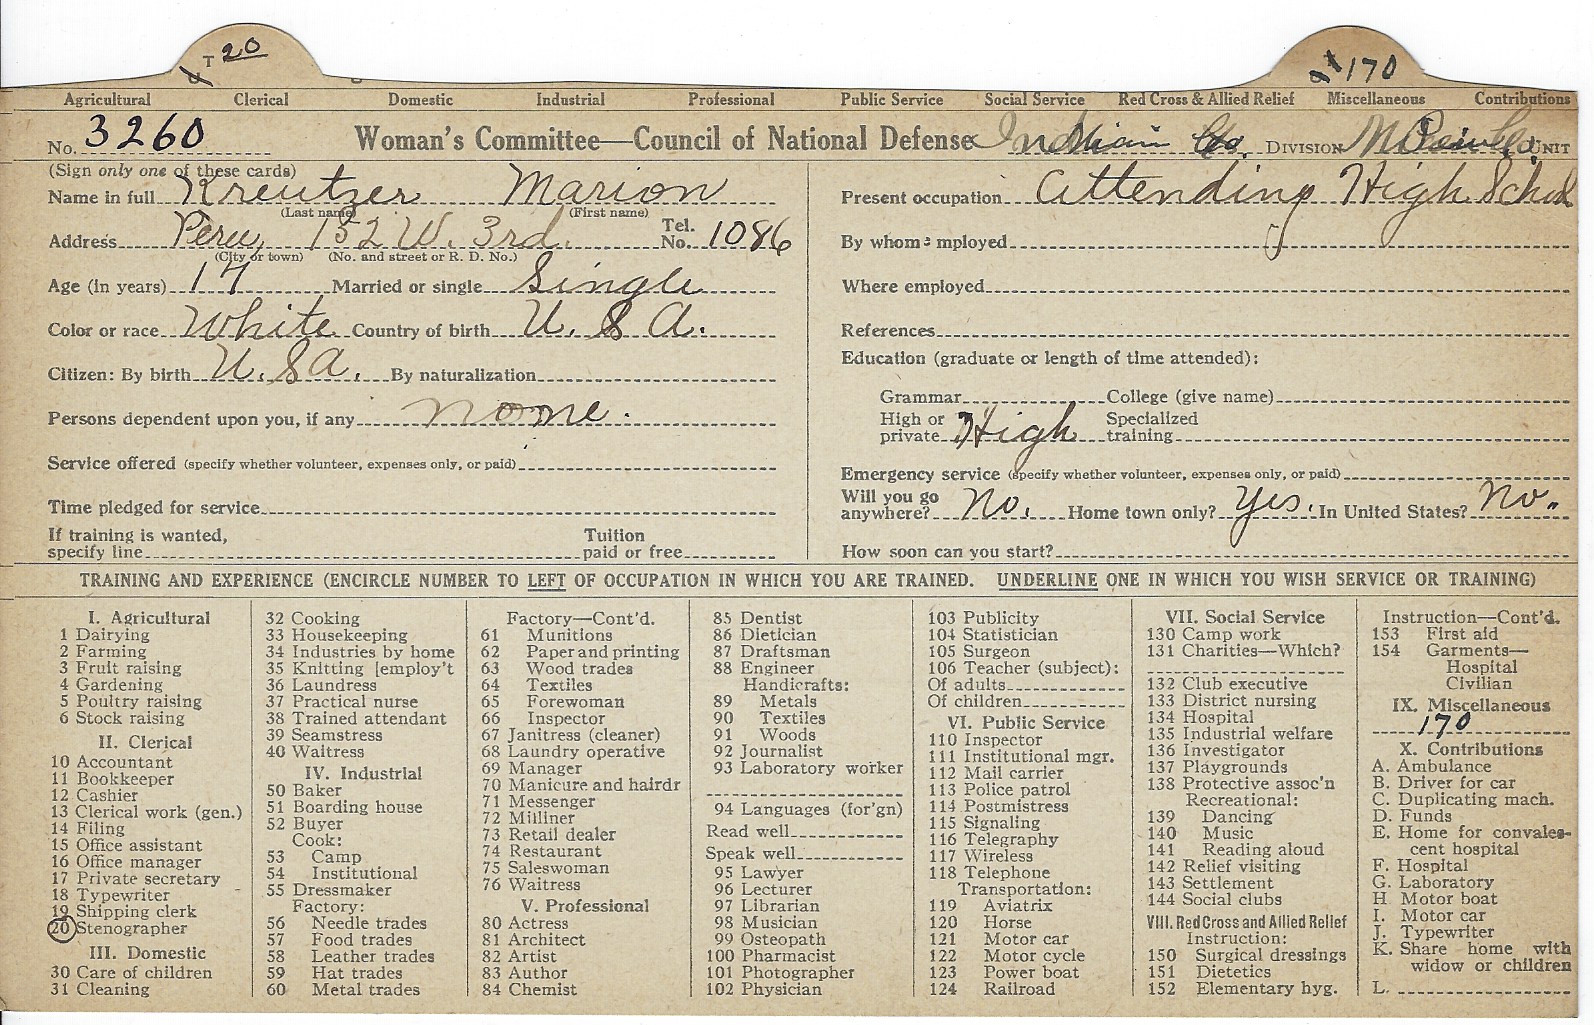 T 20
170
Agricultural Clerical Domestic Industrial Professional Public Service Social Service Red Cross & Allied Relief Miscellaneous Contributions
No. 3260 Woman's Committee—Council of National Defense DIVISION UNIT
(Sign only one of these cards)
Name in full Kreutzer Marion
(Last name) (First name)
Address Peru, 152 W. 3rd. Tel. No. 1086
(City or town) (No. and street or R. D. No.)
Age (in years) 17 Married or single Single
Color or race White Country of birth U. S A.
Citizen: By birth U. S A. By naturalization
Persons dependent upon you, if any none.
Service offered (specify whether volunteer, expenses only, or paid)
Time pledged for service
If training is wanted, specify line Tuition paid or free
Present occupation attending High School
By whom employed
Where employed
References
Education (graduate or length of time attended):
Grammar College (give name)
High or private High Specialized training
Emergency service (specify whether volunteer, expenses only, or paid)
Will you go anywhere? No. Home town only? Yes. In United States? No.
How soon can you start?
TRAINING AND EXPERIENCE (ENCIRCLE NUMBER TO LEFT OF OCCUPATION IN WHICH YOU ARE TRAINED. UNDERLINE ONE IN WHICH YOU WISH SERVICE OR TRAINING)
I. Agricultural
1 Dairying
2 Farming
3 Fruit raising
4 Gardening
5 Poultry raising
6 Stock raising
II. Clerical
10 Accountant
11 Bookkeeper
12 Cashier
13 Clerical work (gen.)
14 Filing
15 Office assistant
16 Office manager
17 Private secretary
18 Typewriter
19 Shipping clerk
20 Stenographer
III. Domestic
30 Care of children
31 Cleaning
32 Cooking
33 Housekeeping
34 Industries by home
35 Knitting [employ't
36 Laundress
37 Practical nurse
38 Trained attendant
39 Seamstress
40 Waitress
IV. Industrial
50 Baker
51 Boarding house
52 Buyer
Cook:
53 Camp
54 Institutional
55 Dressmaker
Factory:
56 Needle trades
57 Food trades
58 Leather trades
59 Hat trades
60 Metal trades
Factory—Cont'd.
61 Munitions
62 Paper and printing
63 Wood trades
64 Textiles
65 Forewoman
66 Inspector
67 Janitress (cleaner)
68 Laundry operative
69 Manager
70 Manicure and hairdr
71 Messenger
72 Milliner
73 Retail dealer
74 Restaurant
75 Saleswoman
76 Waitress
V. Professional
80 Actress
81 Architect
82 Artist
83 Author
84 Chemist
85 Dentist
86 Dietician
87 Draftsman
88 Engineer
Handicrafts:
89 Metals
90 Textiles
91 Woods
92 Journalist
93 Laboratory worker
94 Languages (for'gn)
Read well
Speak well
95 Lawyer
96 Lecturer
97 Librarian
98 Musician
99 Osteopath
100 Pharmacist
101 Photographer
102 Physician
103 Publicity
104 Statistician
105 Surgeon
106 Teacher (subject):
Of adults
Of children
VI. Public Service
110 Inspector
111 Institutional mgr.
112 Mail carrier
113 Police patrol
114 Postmistress
115 Signaling
116 Telegraphy
117 Wireless
118 Telephone
Transportation:
119 Aviatrix
120 Horse
121 Motor car
122 Motor cycle
123 Power boat
124 Railroad
VII. Social Service
130 Camp work
131 Charities—Which?
132 Club executive
133 District nursing
134 Hospital
135 Industrial welfare
136 Investigator
137 Playgrounds
138 Protective assoc'n
Recreational:
139 Dancing
140 Music
141 Reading aloud
142 Relief visiting
143 Settlement
144 Social clubs
VIII. Red Cross and Allied Relief
Instruction:
150 Surgical dressings
151 Dietetics
152 Elementary hyg.
Instruction—Cont'd.
153 First aid
154 Garments—
Hospital
Civilian
IX. Miscellaneous
170
X. Contributions
A. Ambulance
B. Driver for car
C. Duplicating mach.
D. Funds
E. Home for convales-
cent hospital
F. Hospital
G. Laboratory
H Motor boat
I. Motor car
J. Typewriter
K. Share home with
widow or children
L.